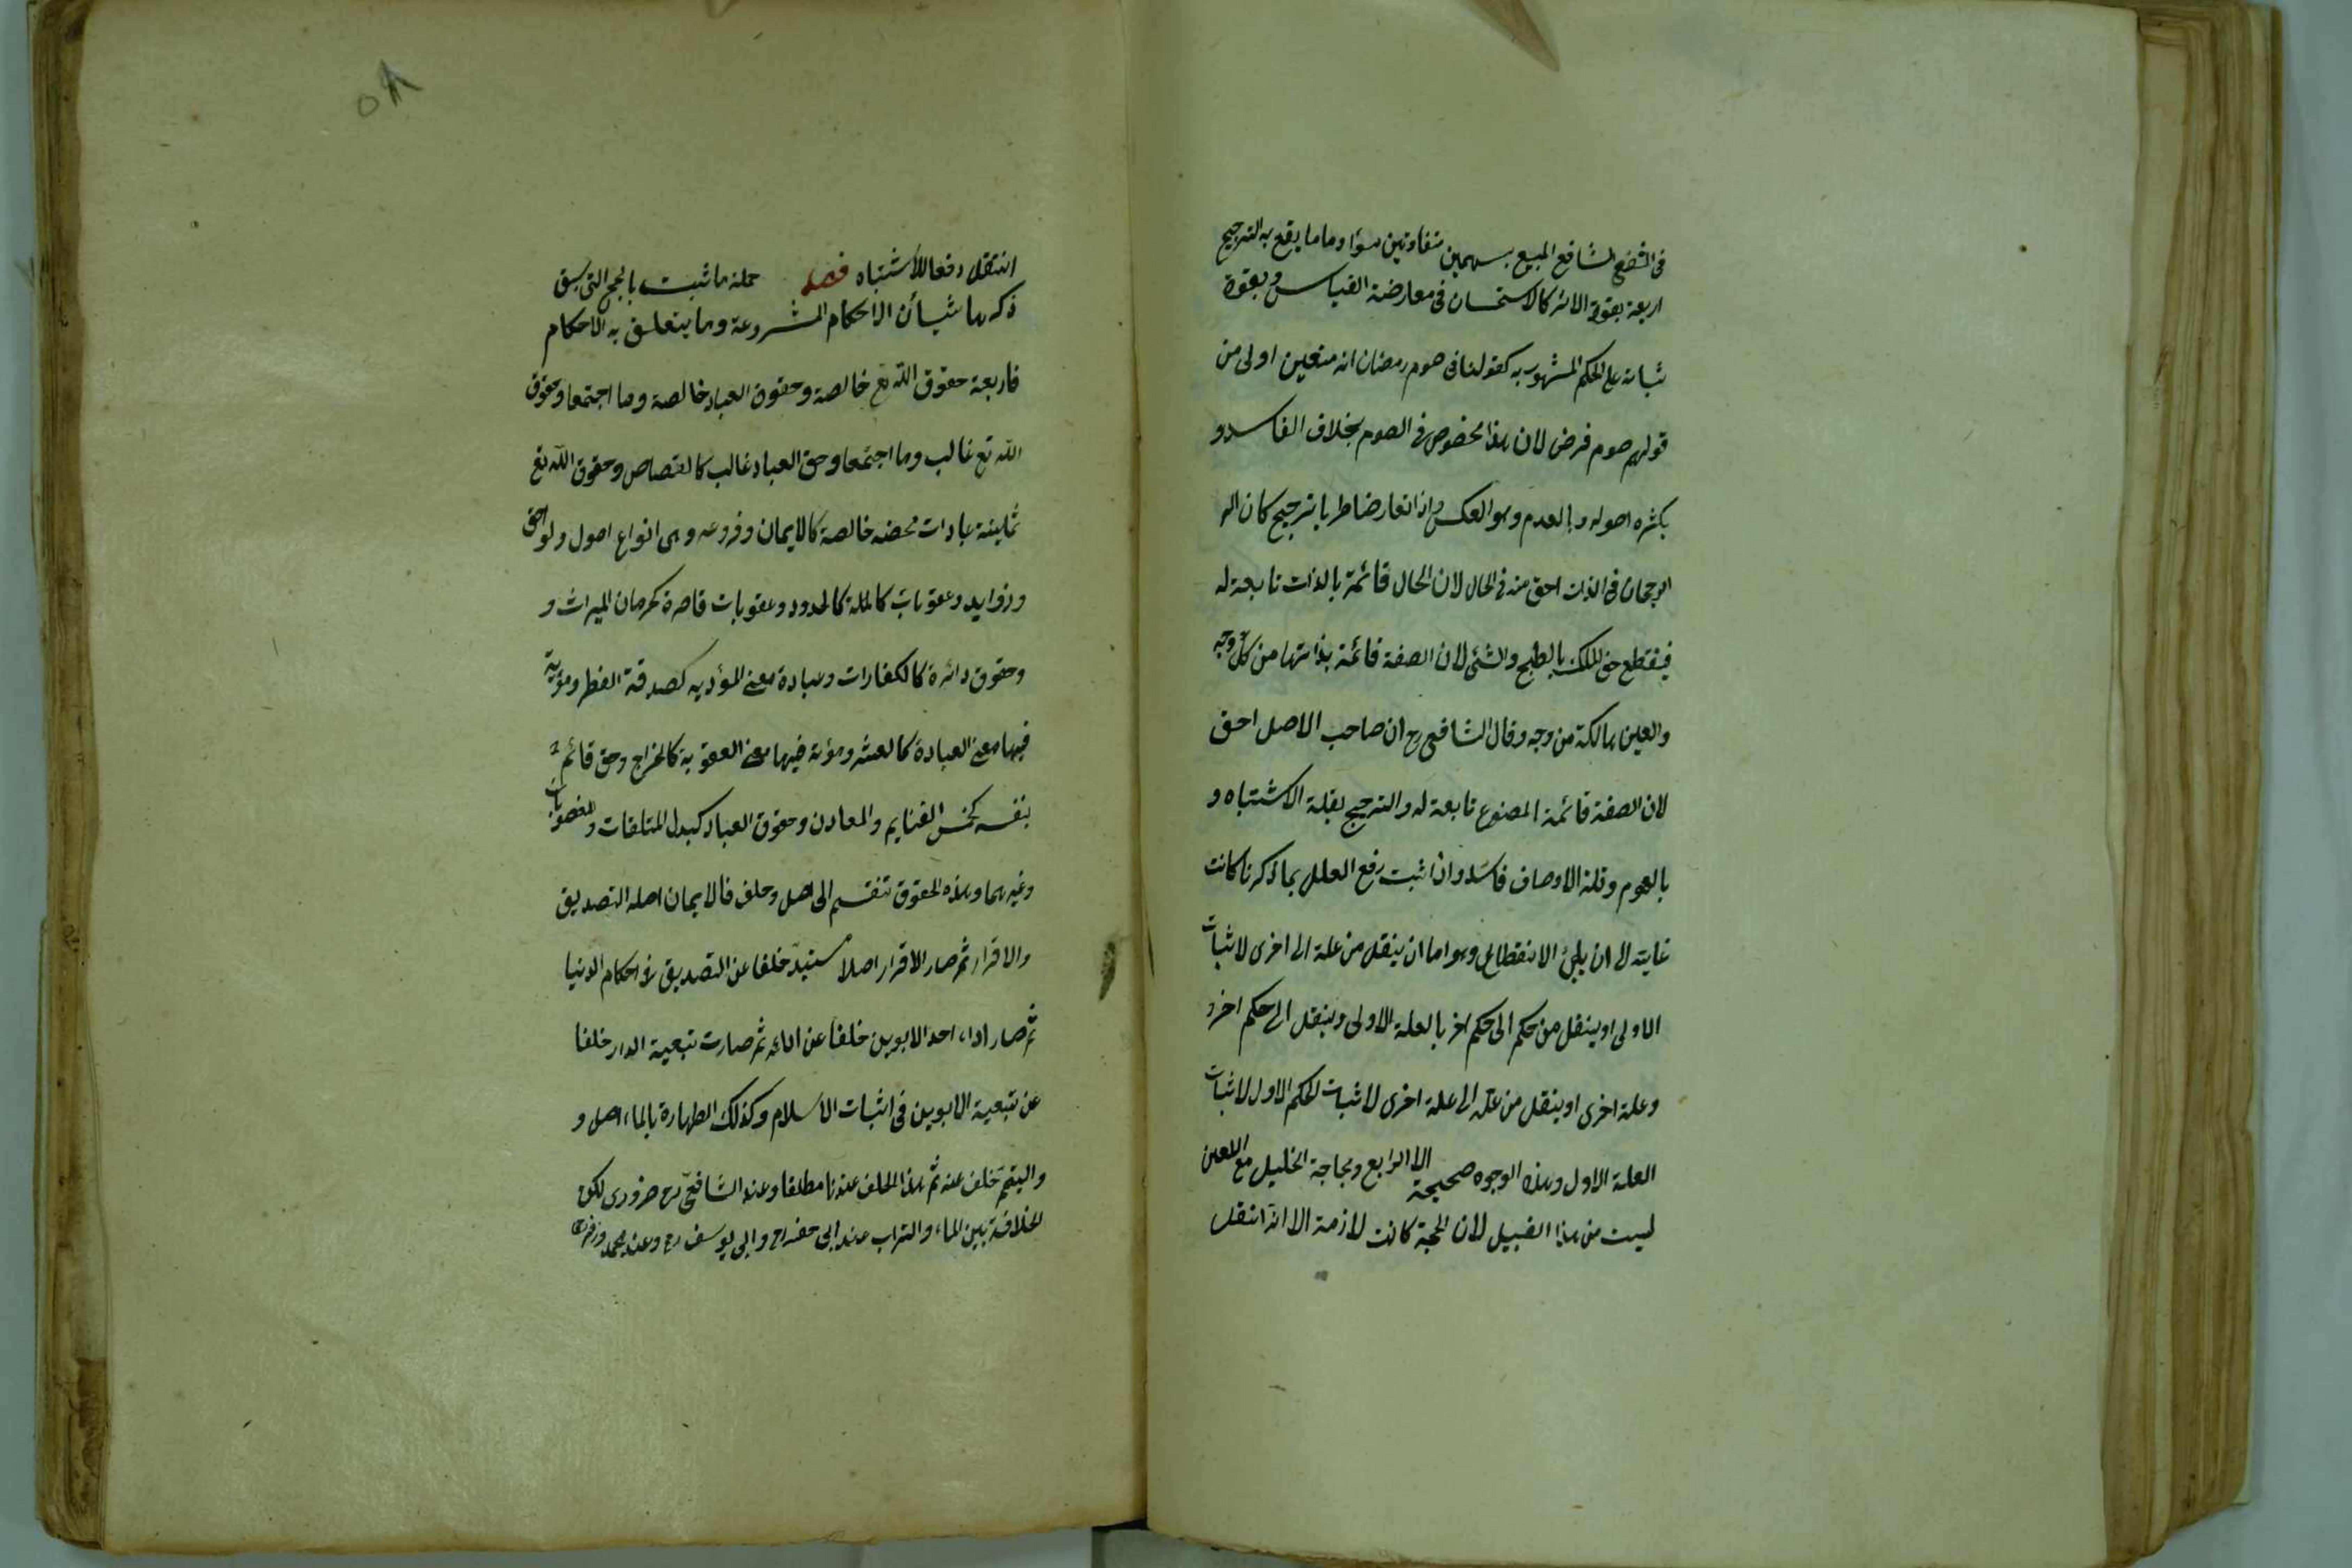 فى الشقص الشايع المبيع بسهمين متفاوتين سواء وما يقع به الترجيح
اربعة بقوة الاثر كالاستحسان فى معارضة القياس وبقوة
ثباته على الحكم المشهود به كقولنا فى صوم رمضان انه متعين اولى من
قولهم صوم فرض لان هذا مخصوص فى الصوم بخلاف الفاسد و
بكثرة اصوله وبالعدم وهو العكس واذا تعارض ضاطربا ترجيح كان الر
الرجحان فى الذات احق منه فى الحال لان الحال قائمة بالذات تابعة له
فينقطع حق المالك بالطبخ والشئ لان الصفة قائمة بذاتها من كل وجه
والعين هالكة من وجه وقال الشافعى رح ان صاحب الاصل احق
لان الصفة قائمة المصنوع تابعة له والترجيح بغلبة الاشتباه و
بالعموم وقلة الاوصاف فاسد وان اثبت رفع العلل بما ذكرنا كانت
غايته الى ان يلجئ الانقطاع وهو اما ان ينقل من علة الى اخرى لاثبات
الاولى او ينقل من حكم الى حكم اخر بالعلة الاولى وينقل الى حكم اخر و
وعلة اخرى او ينقل من علة الى علة اخرى لاثبات الحكم الاول لاثبات
العلة الاول وهذه الوجوه صحيحة الا الرابع ومحاجة الخليل مع اللعين
ليست من هذا القبيل لان الحجة كانت لازمة الا انه انتقل
٥٨
انتقل دفعا للاشتباه فصل جملة ما ثبت بالحجج التى سبق
ذكرها شيأن الاحكام المشروعة وما يتعلق به الاحكام
فاربعة حقوق الله تع خالصة وحقوق العباد خالصة وما اجتمعا وحقوق
الله تع غالب وما اجتمعا وحق العباد غالب كالقصاص وحقوق الله تع
ثمانية عبادات محضه خالصة كالايمان وفروعه وهى انواع اصول ولواحق
وزوايد وعقوبات كاملة كالحدود وعقوبات قاصرة كحرمان الميراث و
وحقوق دائرة كالكفارات وعبادة معنى المؤدية كصدقة الفطر ومؤنة
فيها معنى العبادة كالعشر ومؤنة فيها معنى العقوبة كالخراج وحق قائم
بنفسه كخمس الغنايم والمعادن وحقوق العباد كبدل المتلفات والمغصوبات
وغيرهما وهذه الحقوق تنقسم الى اصل وخلف فالايمان اصله التصديق
والاقرار ثم صار الاقرار اصلا مستبدا خلفا عن التصديق فى احكام الدنيا
ثم صار اداء احد الابوين خلفا عن ادائه ثم صارت تبعية الدار خلفا
عن تبعية الابوين فى اثبات الاسلام وكذلك الطهارة بالماء اصل و
والتيمم خلف عنه ثم هذا الخلف عندنا مطلقا وعند الشافعى رح ضرورى لكن
الخلافة بين الماء والتراب عند ابى حنفه رح وابى يوسف رح وعند محمد وزفر رح